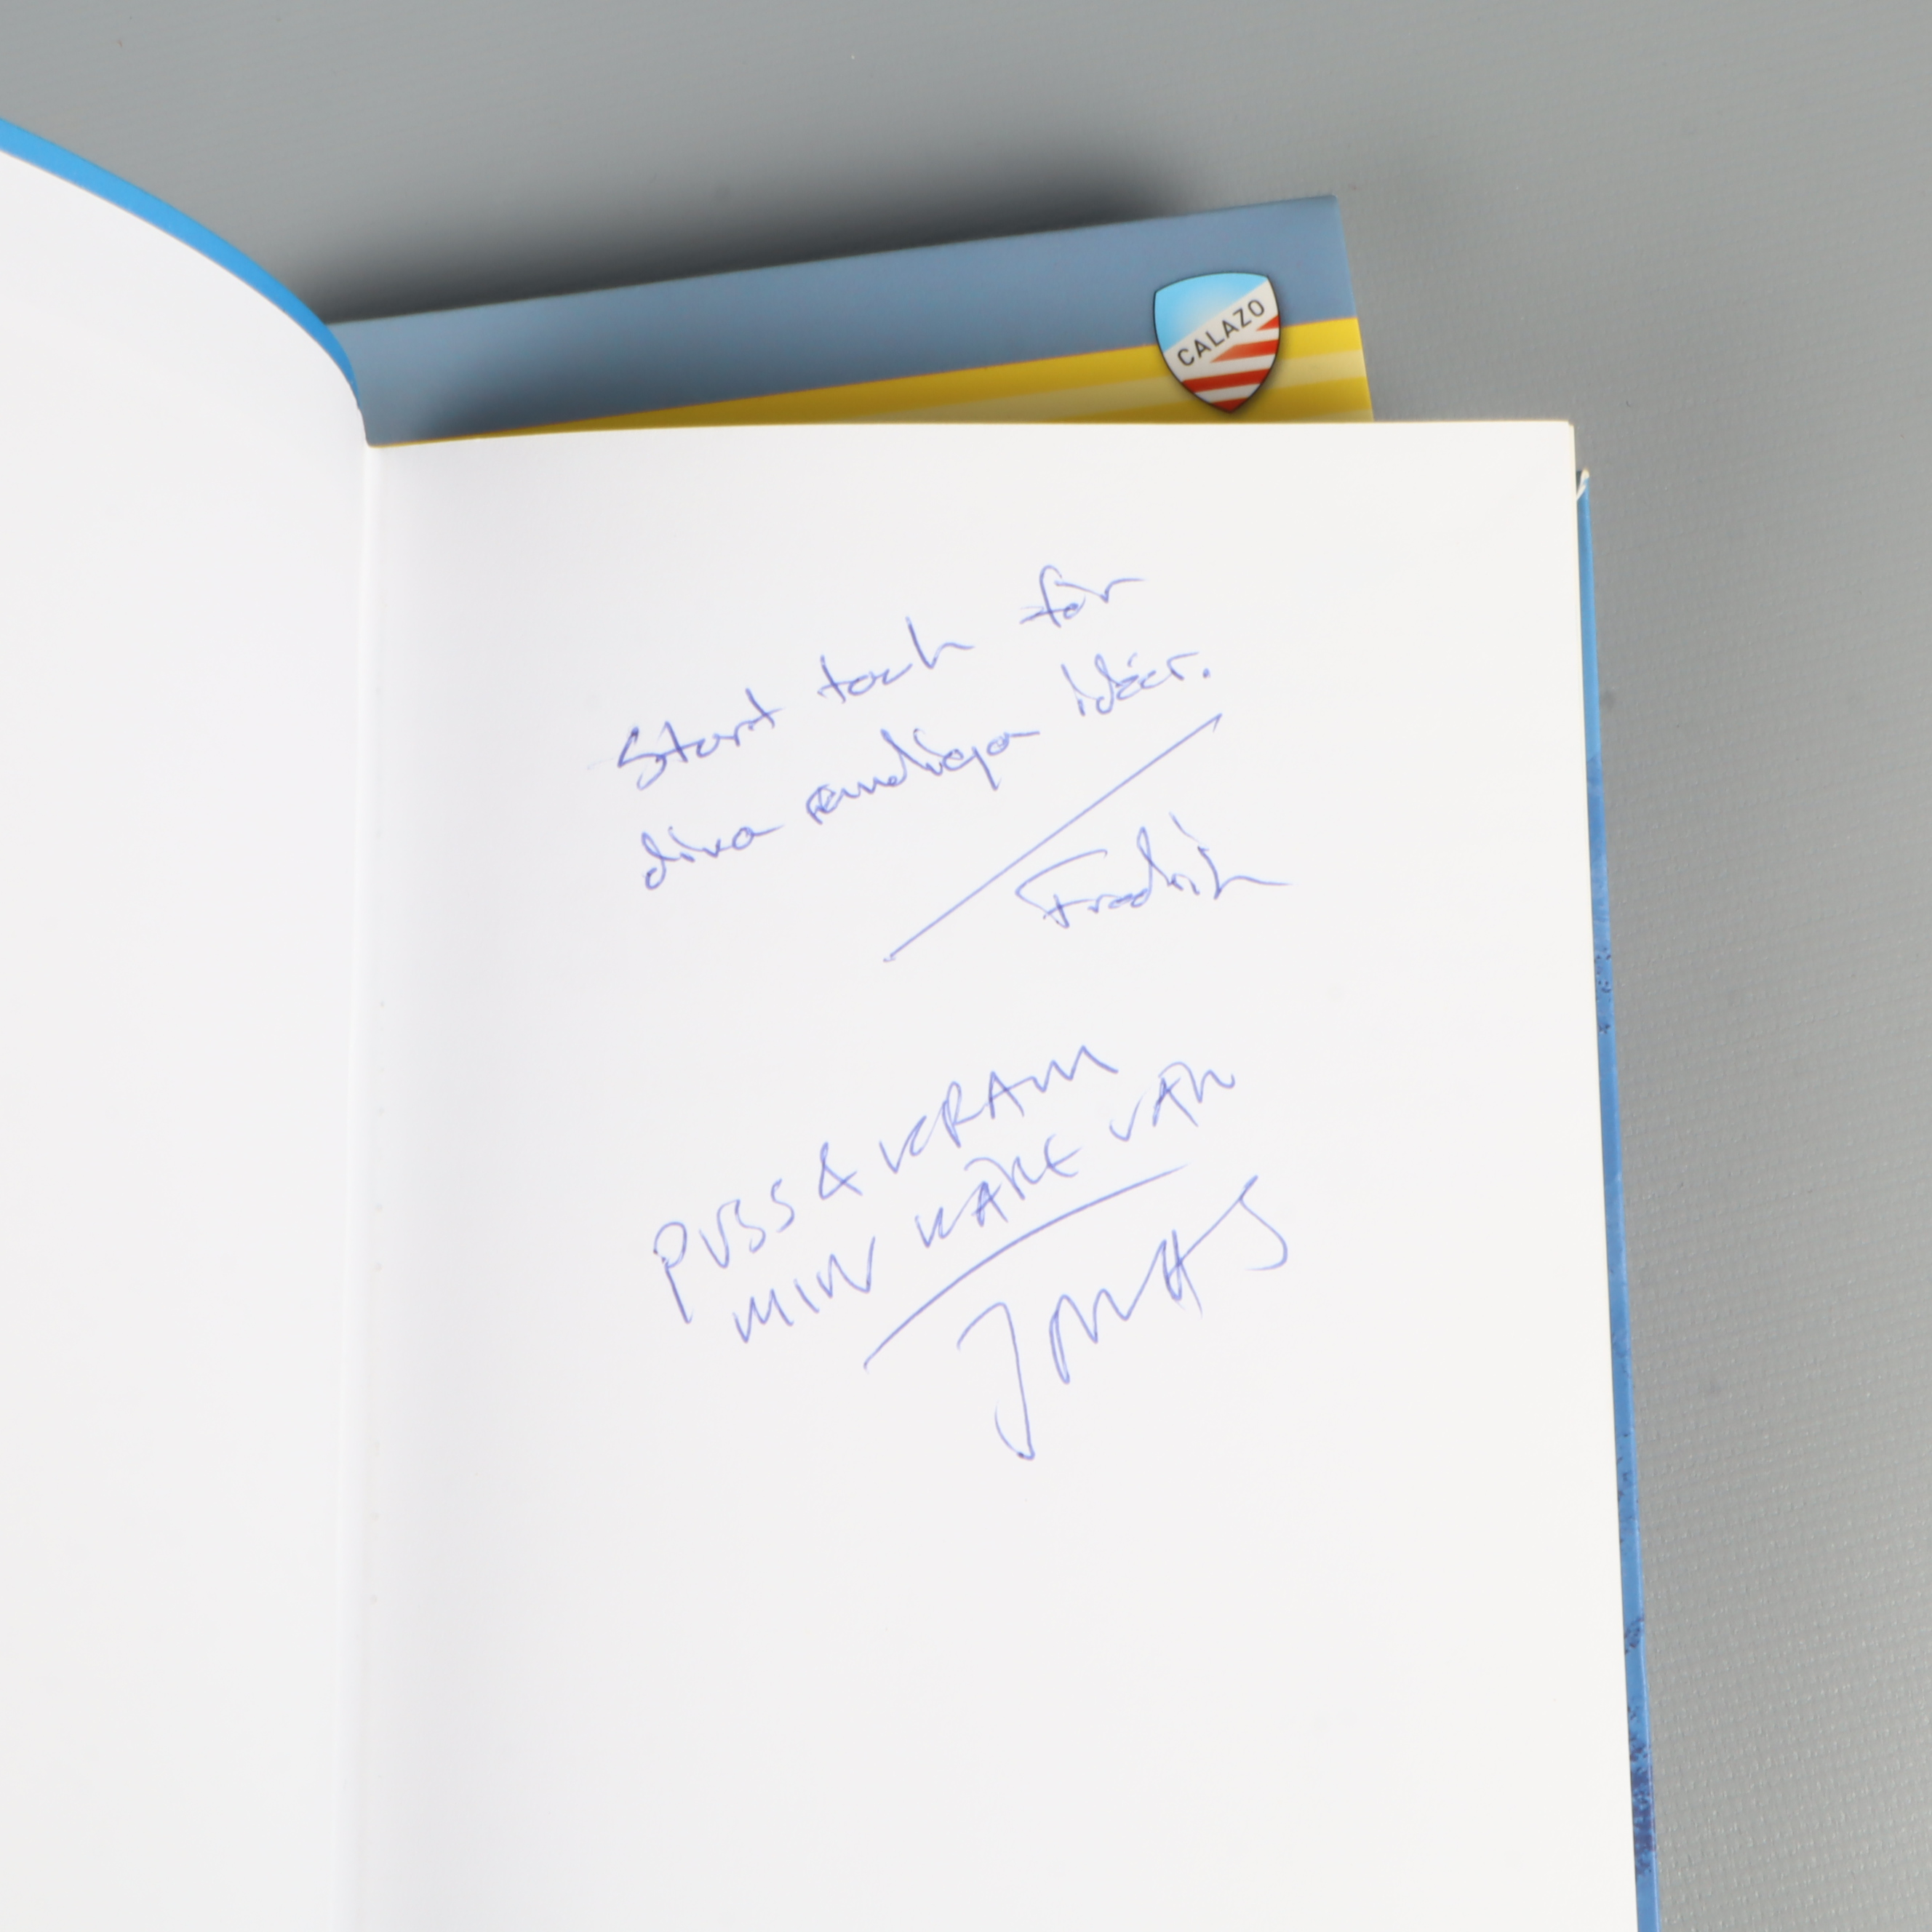 CALAZO
Stort tack för
dina idéer.
Fredrik
PUSS & KRAM
MIN KÄRE VÄN
JONAS